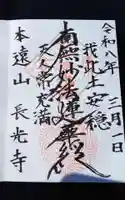 令和八年三月一日
我此土安穏
南無妙法蓮華経
天人常充満
本遠山長光寺